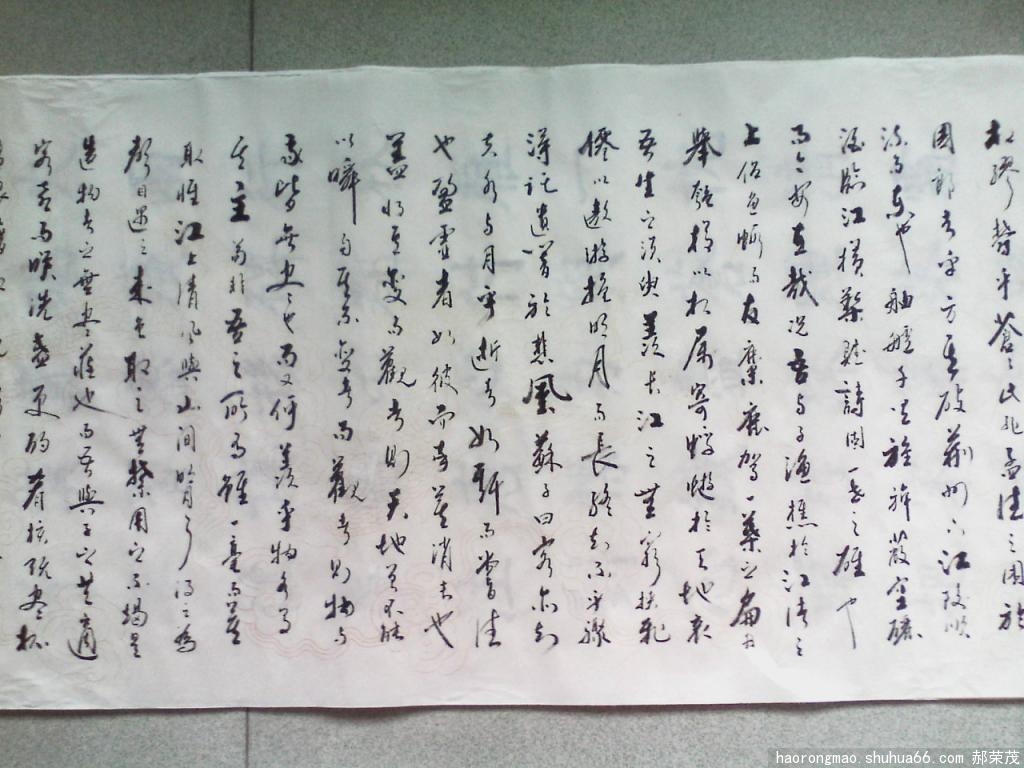 相繆欝乎蒼々此非孟德之困於
周郎者乎方其破荊州下江陵順
流而東也舳艫千里旌旗蔽空釃
酒臨江橫槊賦詩固一世之雄也
而今安在哉況吾與子漁樵於江渚之
上侶魚蝦而友麋鹿駕一葉之扁舟
舉匏樽以相屬寄蜉蝣於天地哀
吾生之須臾羨長江之無窮挾飛
僊以遨游抱明月而長終知不乎驟
得託遺響於悲風蘇子曰客亦知
夫水與月乎逝者如斯而嘗往
也盈虛者如彼而卒莫消長也
蓋將自其變而觀者則天地曾不能
以瞬自其不變者而觀者則物與
我皆無盡也而又何羨乎物各有
其主苟非吾之所有雖一毫而莫
取惟江上清風與山間明月得之為
聲目遇之成色取之無禁用之不竭是
造物者之無盡藏也而吾與子之共適
客喜而笑洗盞更酌肴核既盡杯
haorongmao.shuhua66.com 郝荣茂